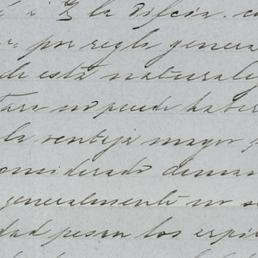 la difcia. c
por regla genera
de esta naturale
tara no puede haber
la ventaja mayor
considerado deman
generalmente no s
dad pesan los espi